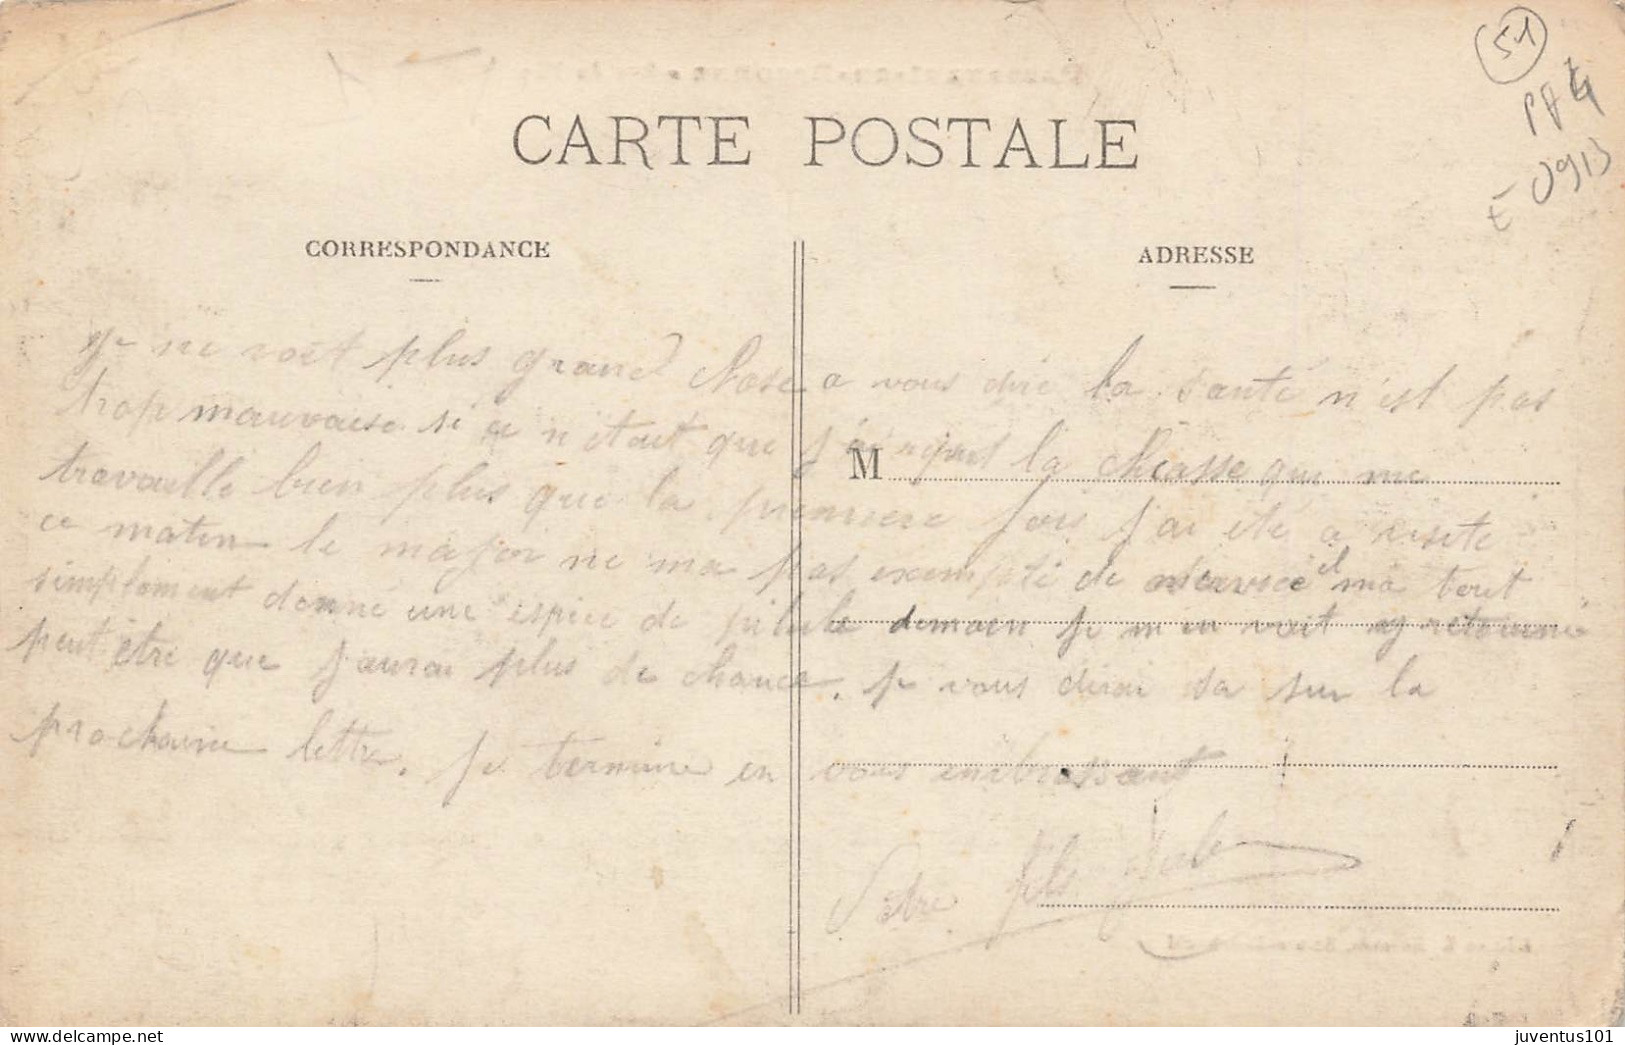 51
PA4
E 0913
CARTE POSTALE
CORRESPONDANCE
ADRESSE
M
Je ne voit plus grand Chose a vous dire la santé n'est pas
trop mauvaise si ce n'etait que j'ai repris la chiasse qui me
travaille bien plus que la premiere fois j'ai été a visite
ce matin le major ne ma pas exempté de service il ma tout
simploment donné une espice de pilule demain je m en vait y retourné
peut être que j'aurai plus de chance. je vous dirai sa sur la
prochaine lettre. Je termine en vous embrassant
Votre fils Jules
juventus101